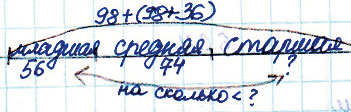 98+(98+36)
младшая средняя, старшая
56 74 ?
на сколько < ?